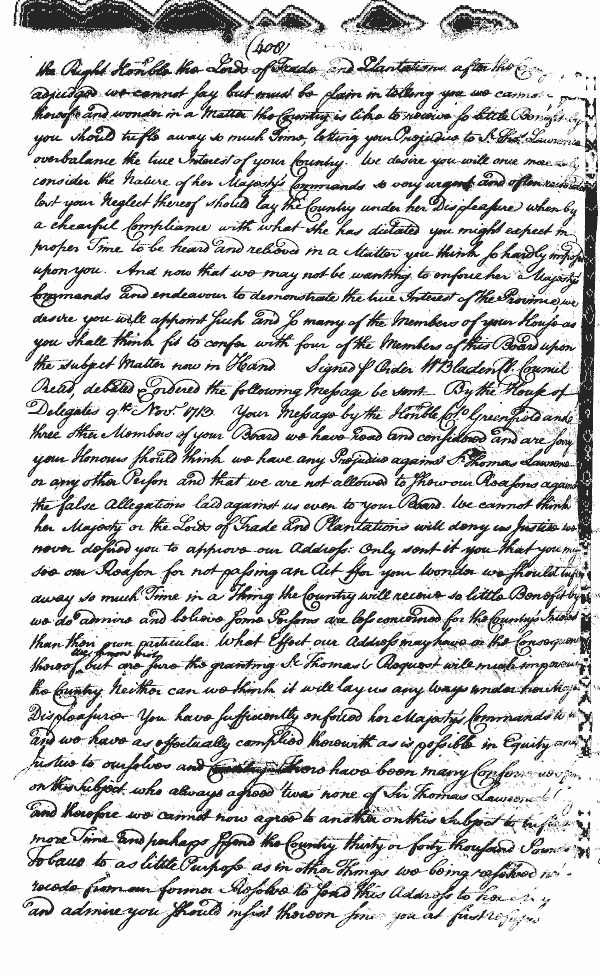 (408)
the Right Honble the Lords of Trade and Plantations after the
adjudge we cannot say but must be plain in telling you we cannot
therefore and wonder in a Matter the Country is like to receive so little Benefit by
you should trifle away so much Time, letting your Prejudice to Sr Thos Lawrence
overbalance the true Interest of your Country. We desire you will once more
consider the Nature of her Majestys Commands so very urgent and often
lest your Neglect thereof should lay the Country under her Displeasure when by
a chearful Compliance with what She has dictated you might expect in
proper Time to be heard and relieved in a Matter you think so hardly impos
upon you. And now that we may not be wanting to enforce her Majestys
Commands and endeavour to demonstrate the true Interest of the Province, we
desire you will appoint such and so many of the Members of your House as
you shall think fit to confer with four of the Members of this Board upon
the subject Matter now in Hand Signed p Order W Bladen Cl. Council
Read, debated & ordered the following Message be sent. By the House of
Delegates 9th Novr 1713. Your Message by the Honble Colo Greenfield and
three other Members of your Board we have read and considered and are sorry
your Honours should think we have any Prejudice against Sr Thomas Lawrence
or any other Person and that we are not allowed to shew our Reasons against
the false Allegations laid against us even to your Board. We cannot think
her Majesty or the Lords of Trade and Plantations will deny us Justice we
never desired you to approve our Address: Only sent it you that you may
see our Reason for not passing an Act. ffor your Wonder we should
away so much Time in a Thing the Country will receive so little Benefit by
we do admire and believe some Persons are less concerned for the Country's Interest
than their own particular. What Effect our Address may have or the Consequence
thereof but are sure the granting Sr Thomas's Request will much impoverish
the Country Neither can we think it will lay us any Ways under her
Displeasure You have sufficiently enforced her Majesty's Commands to us
and we have as effectually complied therewith as is possible in Equity and
Justice to ourselves and there have been many
on this Subject, who always agreed 'twas none of Sir Thomas Lawrence's
and therefore we cannot now agree to another on this Subject to
more Time and perhaps spend the Country thirty or forty thousand Pounds
Tobacco to as little Purpose as in other Things we being resolved not
recede from our former Resolve to send this Address to her
and admire you should insist thereon since you at first